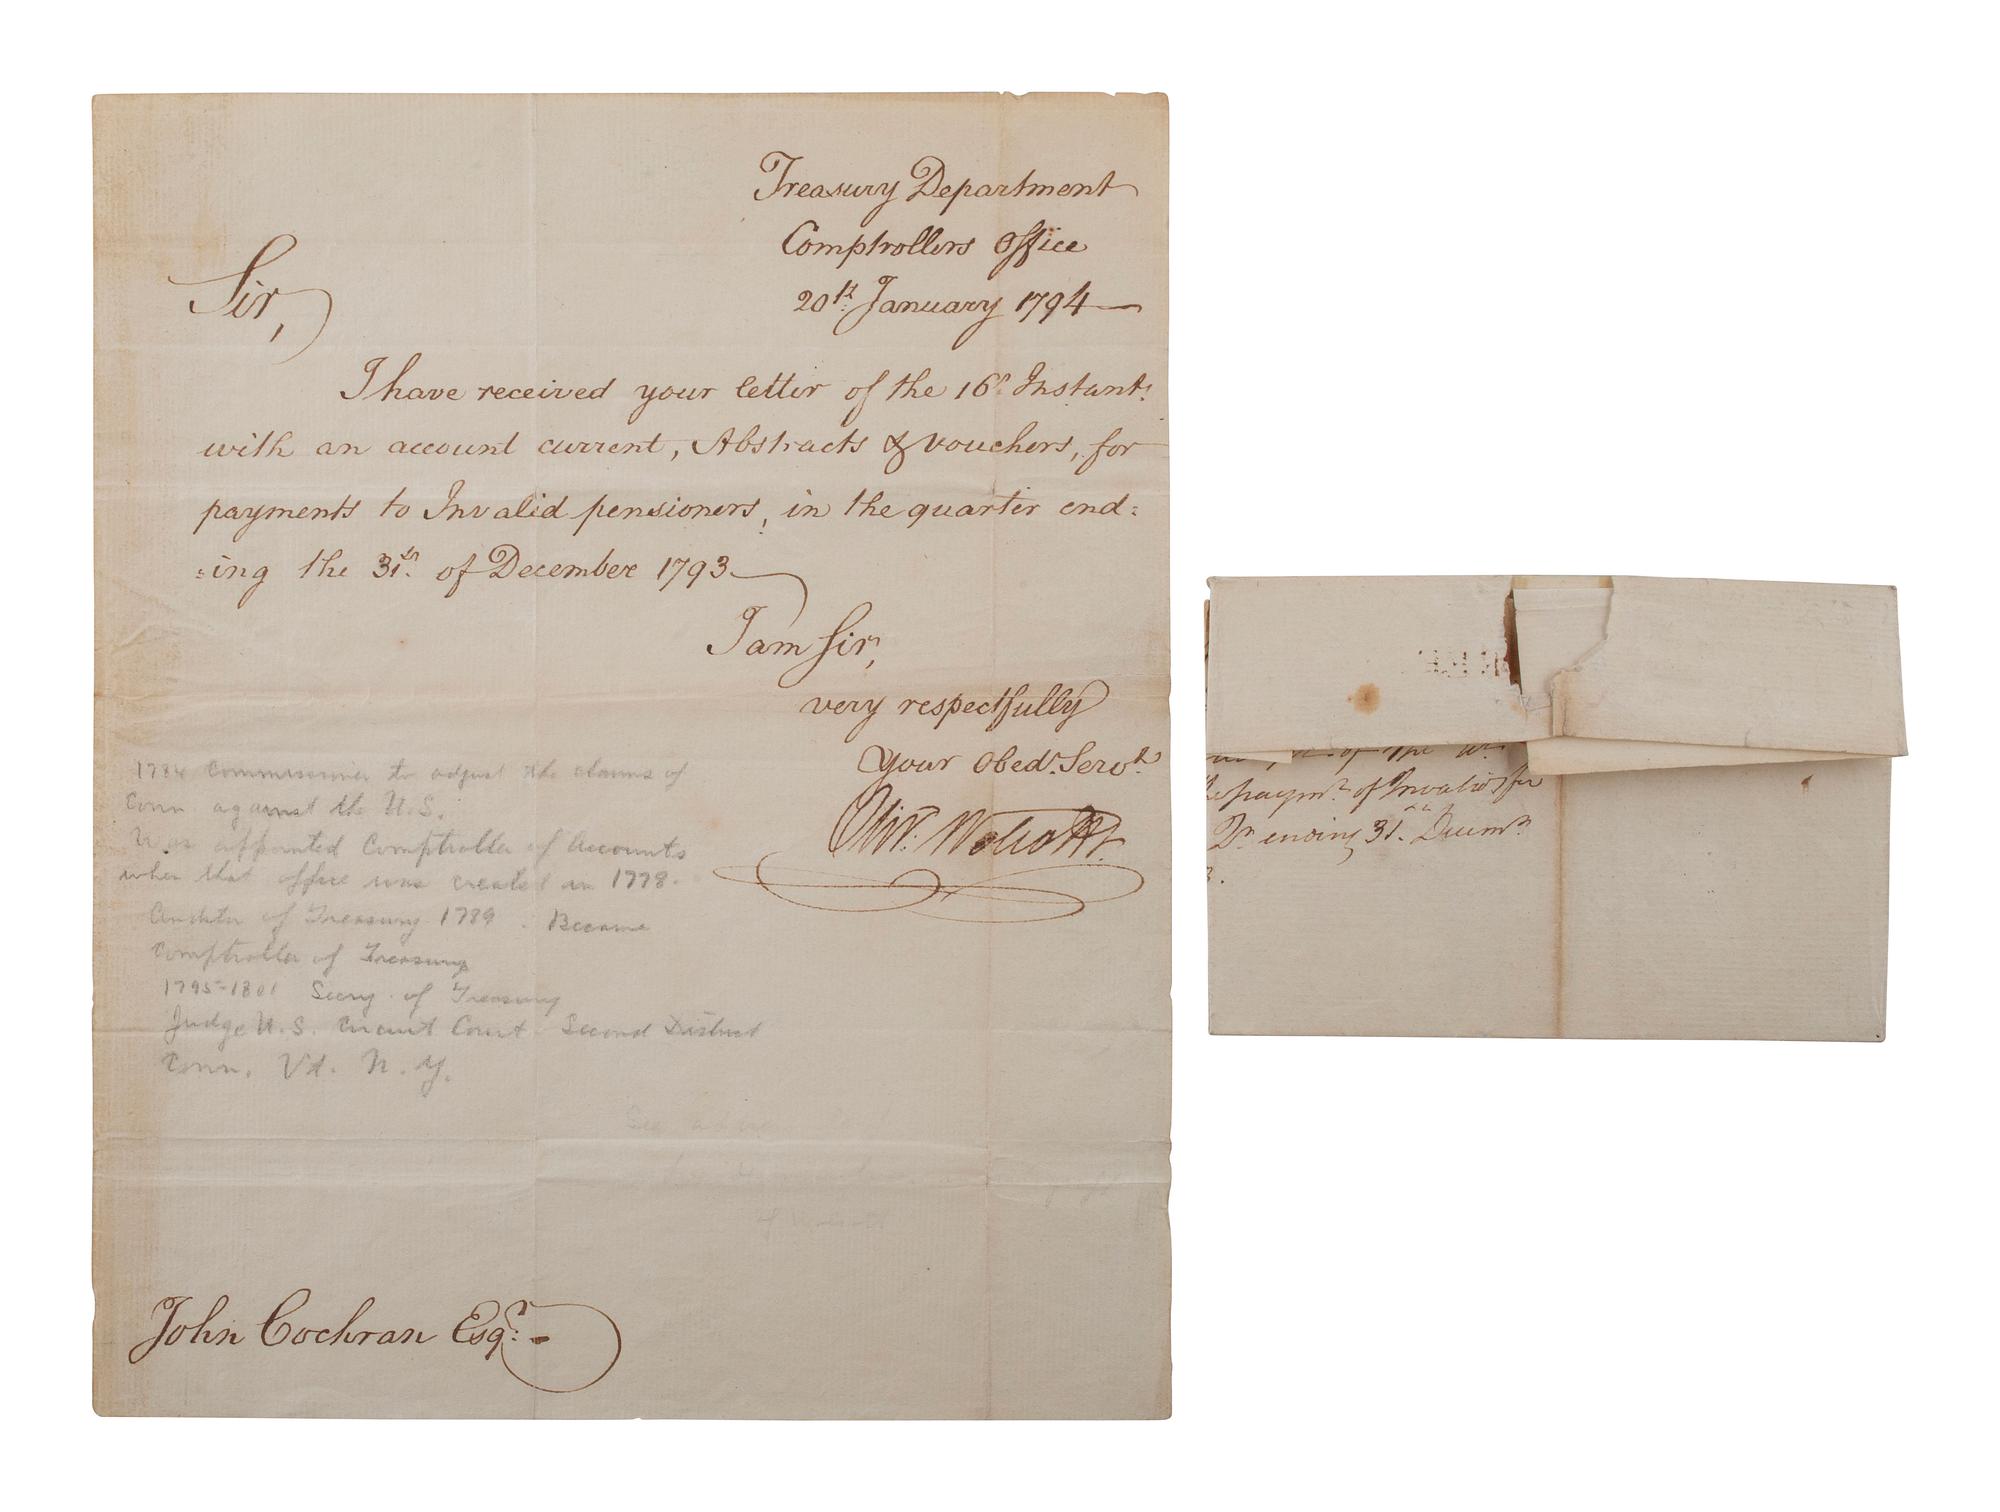 Treasury Department
Comptrollers Office
20th January 1794
Sir,
I have received your letter of the 16th Instant.
with an account current, Abstracts & vouchers, for
payments to Invalid pensioners, in the quarter end=
=ing the 31st of December 1793
I am Sir,
very respectfully
Your Obedt. Servt
Olivr. Wolcott Jr.
1784 Commissioner to adjust the claims of
Conn against the U.S.
Was appointed Comptroller of Accounts
when that office was created in 1778.
Auditor of Treasury 1789. Became
Comptroller of Treasury
1795-1801 Secry. of Treasury
Judge U.S. Circuit Court Second District
Conn. Vt. N.Y.
See
of Wolcott
John Cochran Esqr.
of the
paymt. of Invalids for
Qr. ending 31st Decemr.
3.